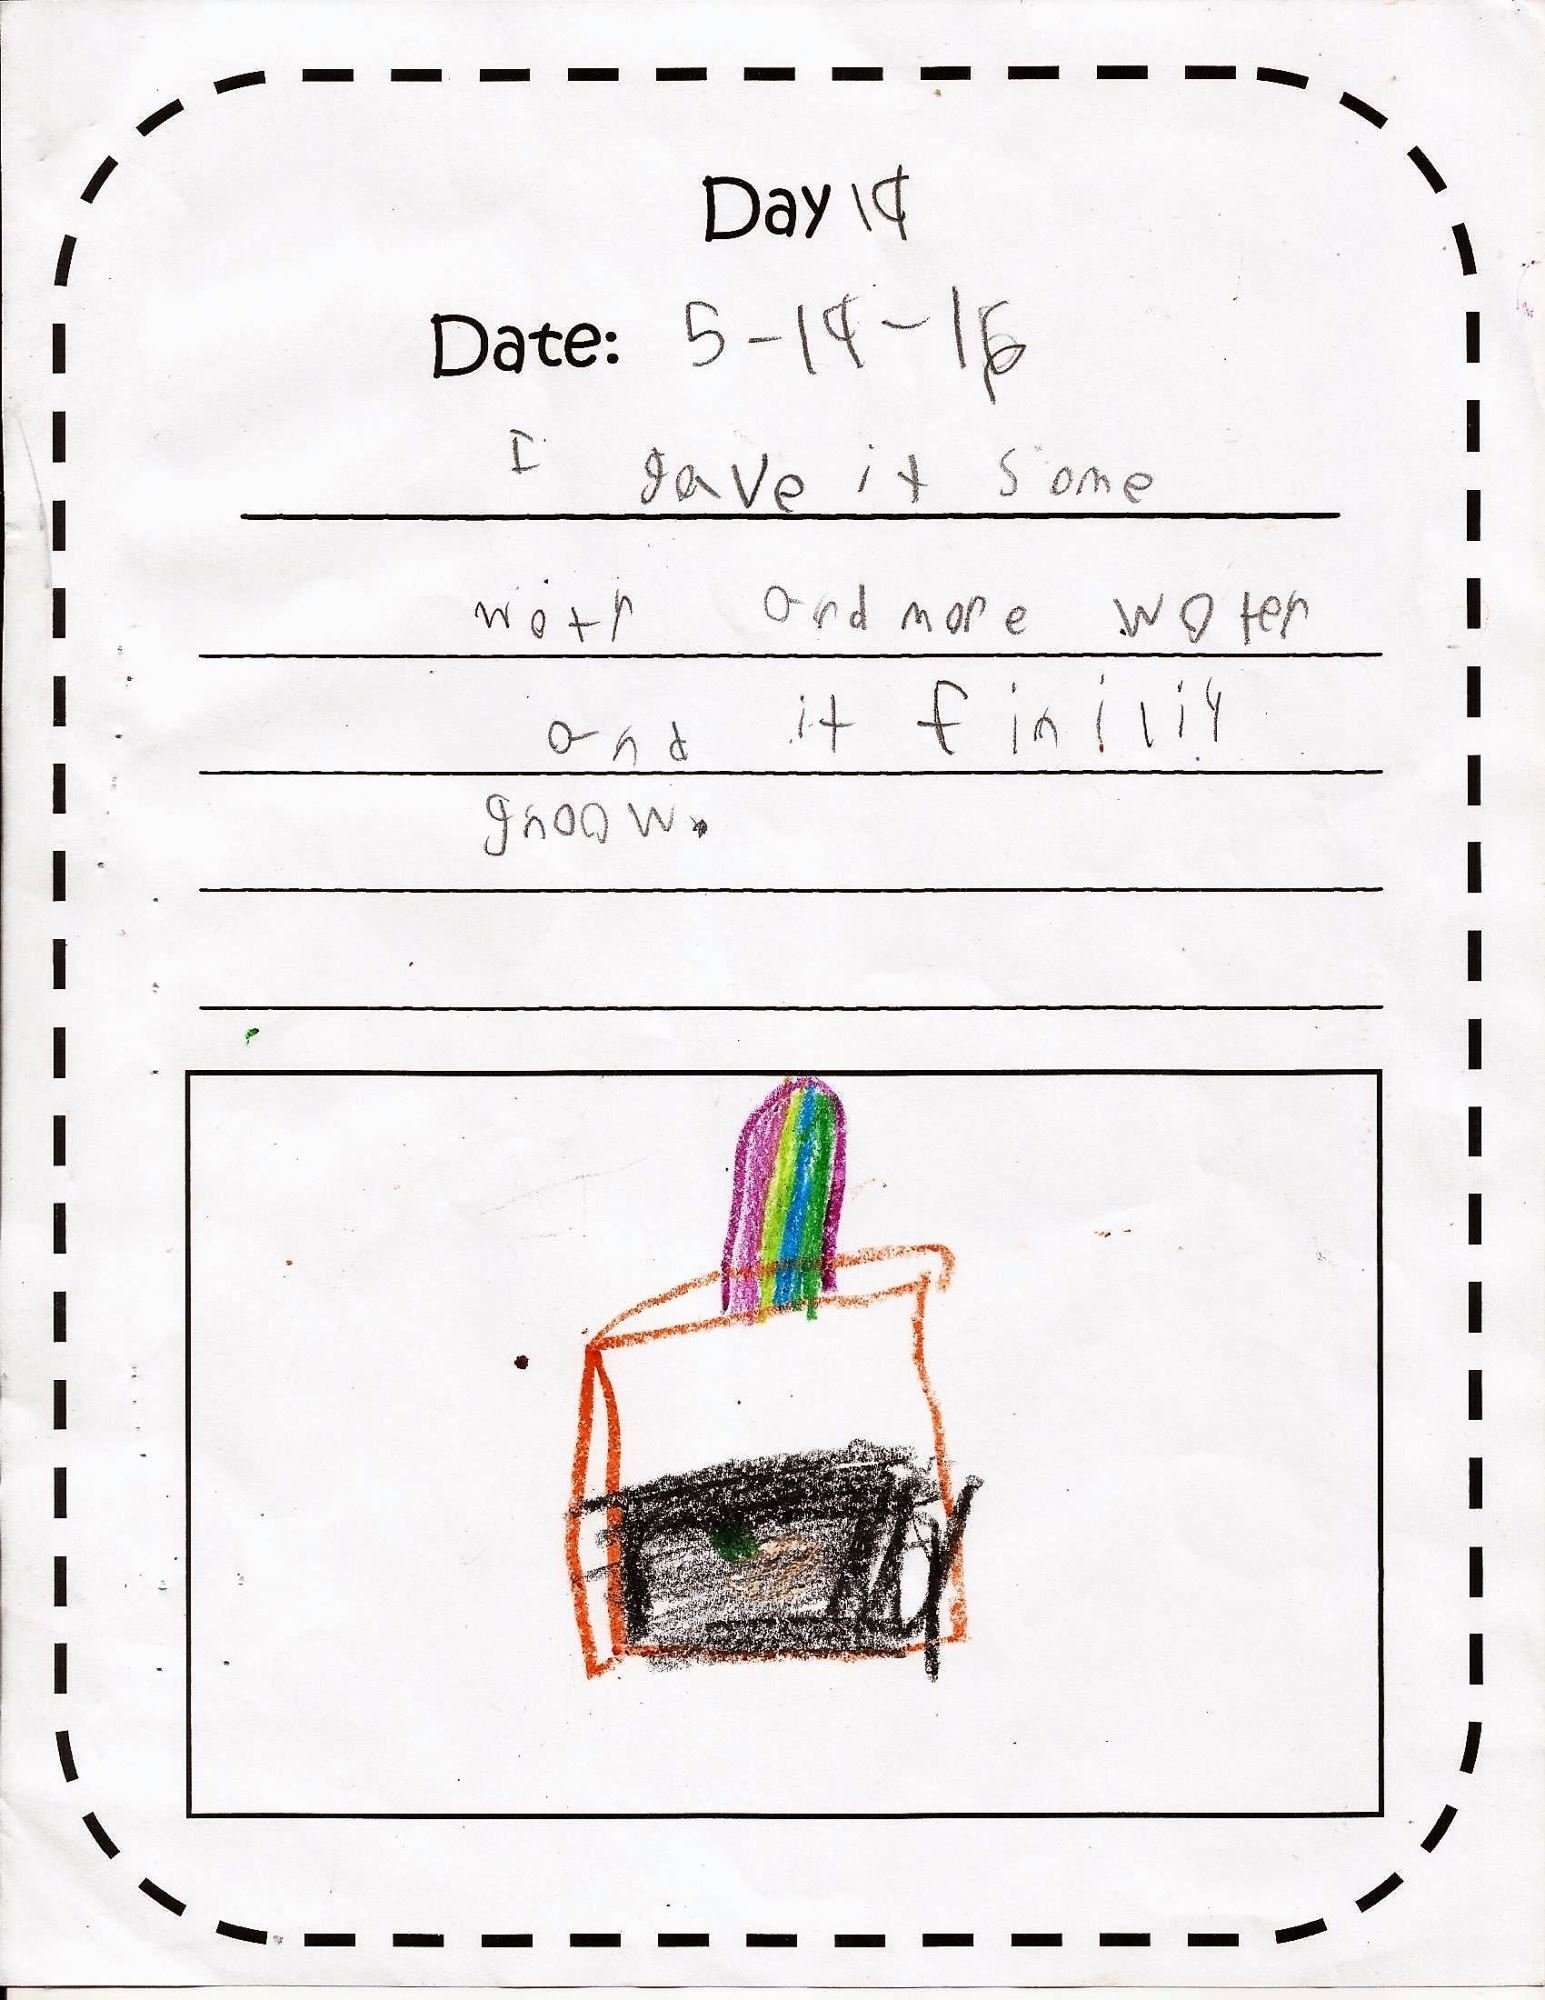 Day 14
Date: 5-14-15
I gave it some
watr and more water
and it finiliy
groow.